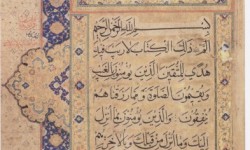 بسم الله الرحمن الرحيم
الم ذلك الكتاب لا ريب فيه
هدى للمتقين الذين يؤمنون بالغيب
ويقيمون الصلوة ومما رزقناهم
ينفقون والذين يؤمنون بما أنزل
إليك وما أنزل من قبلك وبالآخرة